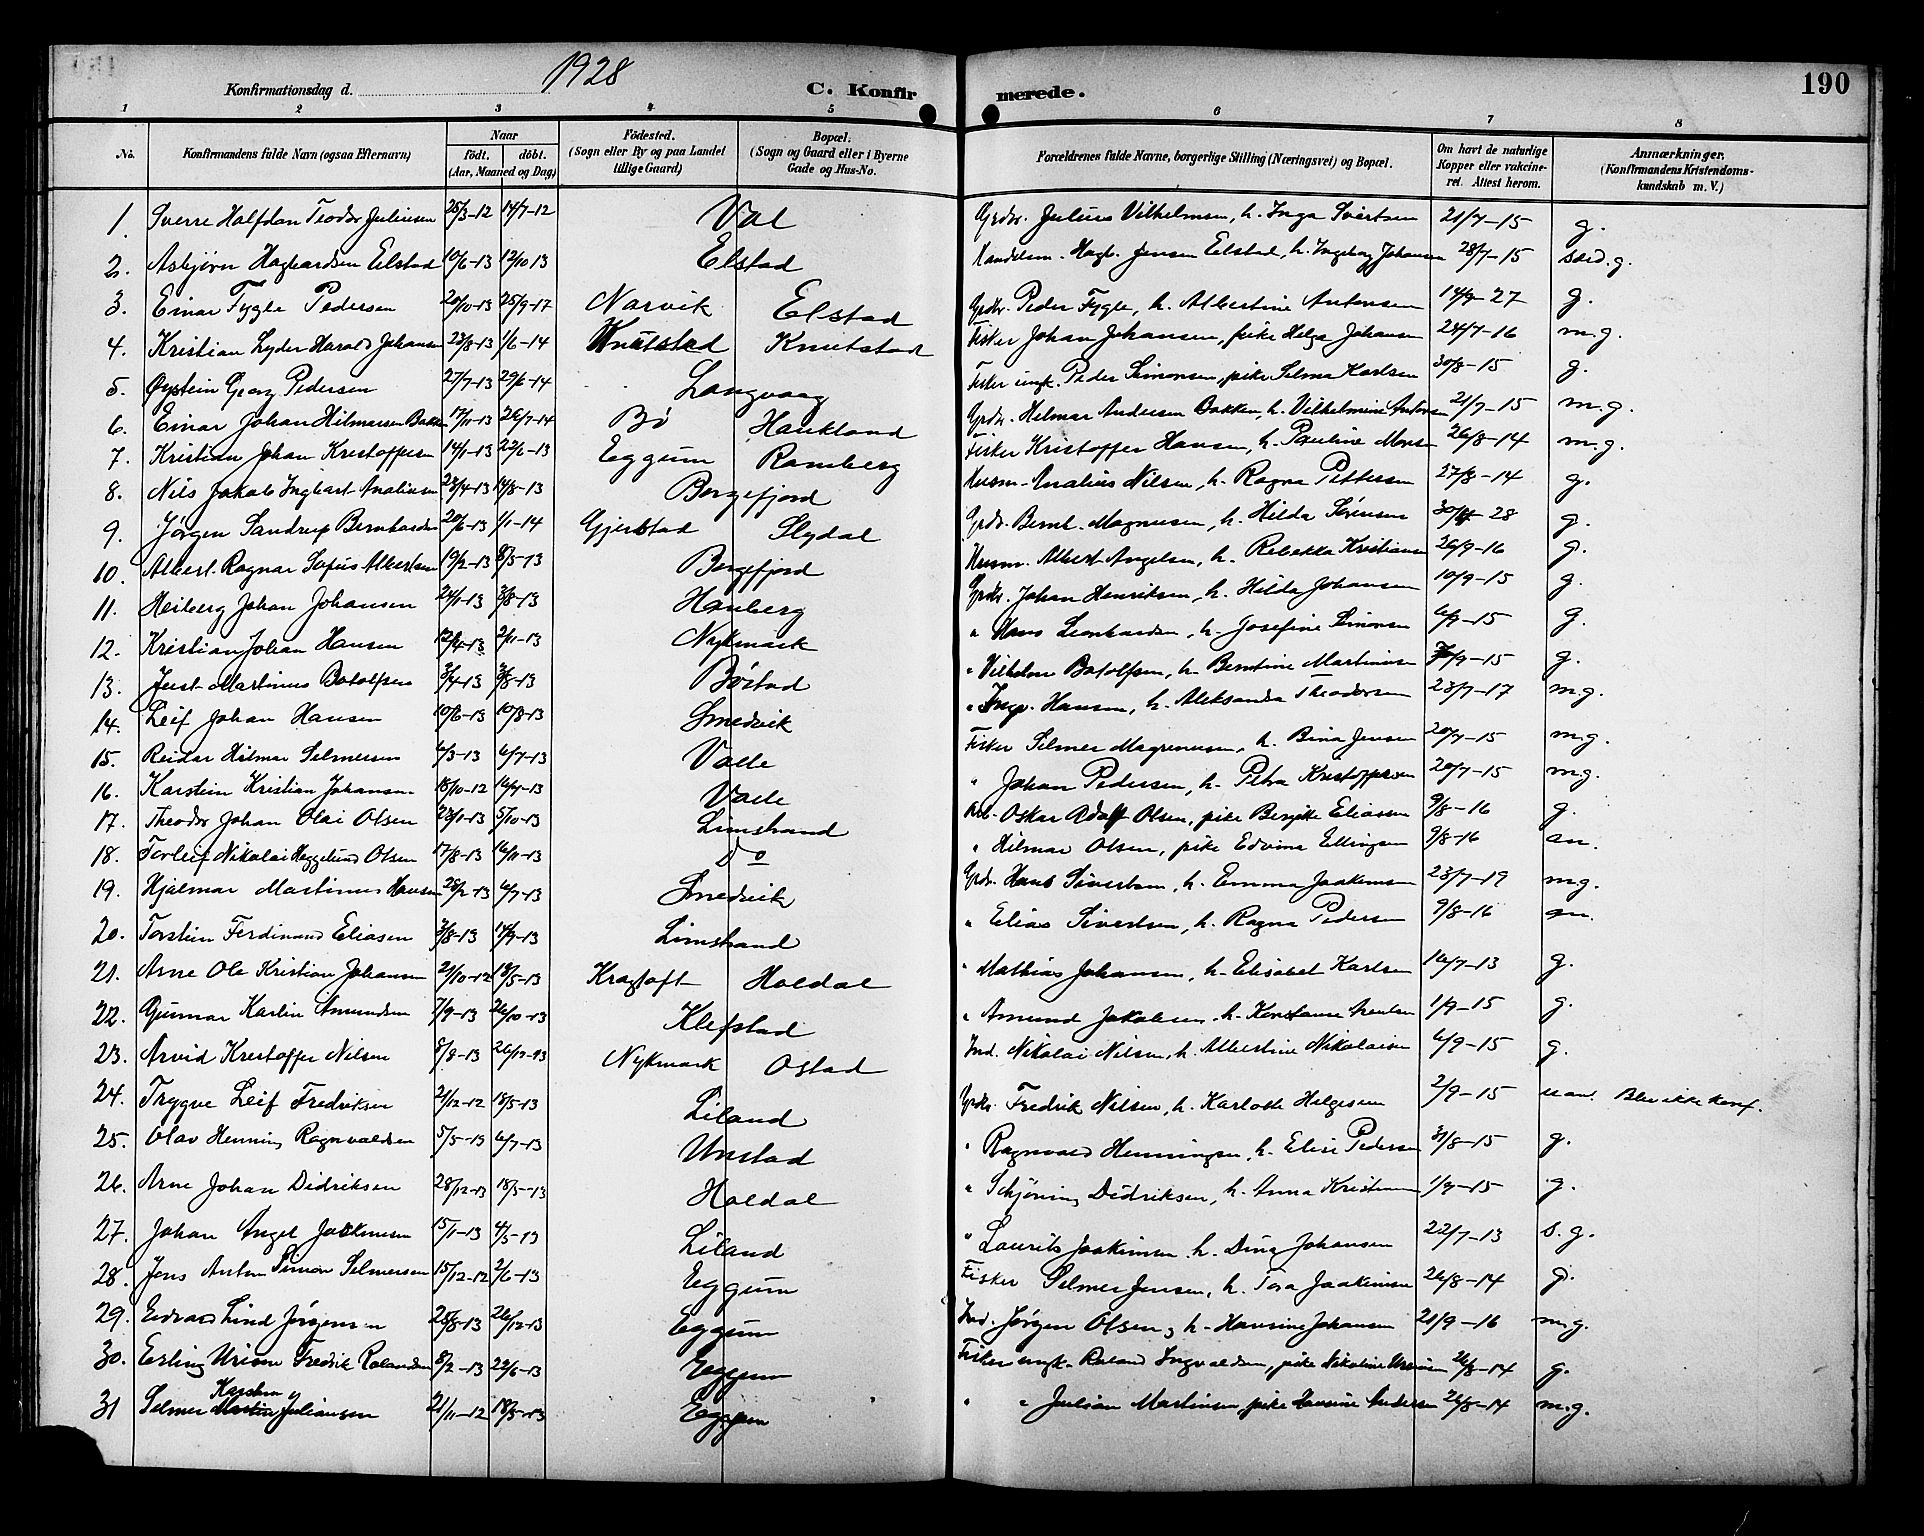 1928
190
Konfirmationsdag d. C. Konfirmerede.
1 2 3 4 5 6 7 8
No. Konfirmandens fulde Navn (ogsaa Efternavn) Naar födt. döbt. (Aar, Maaned og Dag) Födested. (Sogn eller By og paa Landet tillige Gaard) Bopæl. (Sogn og Gaard eller i Byerne Gade og Hus-No. Forældrenes fulde Navne, borgerlige Stilling (Næringsvei) og Bopæl. Om havt de naturlige Kopper eller vakcineret. Attest herom. Anmærkninger. (Konfirmandens Kristendomskundskab m. V.)
1. Sverre Halfdan Teodor Juliussen 25/3-12 14/7-12 Val Grdbr. Julius Vilhelmsen, h. Inga Sivertsen 21/7-15 g.
2. Asbjørn Hagbardsen Elstad 10/6-13 12/10 13 Elstad Handelsm. Hagb. Jensen Elstad, h. Ingeborg Johansen 28/7-15 særd. g.
3. Einar Fygle Pedersen 20/10-13 25/9-17 Narvik Elstad Grdbr. Peder Fygle, h. Albertine Antonsen 14/9-27 g.
4. Kristian Lyder Harald Johansen 23/8-13 1/6-14 Knutstad Knutstad Fisker Johan Johansen, pike Helga Johansen 24/7-16 m.g.
5. Øystein Georg Pedersen 27/7-13 29/6-14 Langvaag Fisker ungk. Peder Simonsen, pike Selma Karlsen 30/8-15 g.
6. Einar Johan Hilmarsen Bakken 17/11-13 26/7-14 Bø Haukland Grdbr. Hilmar Andersen Bakken, h. Vilhelmine Antonsen 21/7-15 m.g.
7. Kristian Johan Kristoffersen 14/1-13 22/6-13 Eggum Ramberg Fisker Kristoffer Hansen, h. Pauline Monsen 26/8-14 m.g.
8. Nils Jakob Ingbart Analiussen 23/4-13 14/8-13 Borgefjord Husm. Analius Nilsen, h. Ragna Pettersen 27/8-14 g.
9. Jørgen Sandrup Bernhardsen 20/6-13 1/1-14 Gjerstad Slydal Grdbr. Bernh. Magnussen, h. Hilda Sørensen 28 g.
10. Albert Ragnar Sofus Albertsen 19/2-13 8/5-13 Borgefjord Husm. Albert Angelsen, h. Rebekka Kristiansen 26/9-16 g.
11. Heiberg Johan Johansen 24/1-13 3/8-13 Hauberg Grdbr. Johan Henriksen, h. Hilda Johansen 10/9-15 g.
12. Kristian Johan Hansen 12/4-13 2/11-13 Nykmark " Hans Leonhardsen, h. Josefine Simonsen 6/9-15 g.
13. Just Martinus Botolfsen 3/4-13 3/8-13 Bøstad " Vilhelm Botolfsen, h. Berntine Martinussen 9-15 g.
14. Leif Johan Hansen 10/6-13 10/8-13 Smedvik " Ingv. Hansen, h. Aleksanda Theodorsen 23/7-17 m.g.
15. Reidar Hilmar Selmersen 6/3-13 6/7-13 Valle Fisker Selmer Magnussen, h. Bina Jensen 20/7-15 m.g.
16. Karstein Kristian Johansen 18/10-12 16/4-13 Valle " Johan Pedersen, h. Petra Kristoffersen 20/7-15 m.g.
17. Theodor Johan Olai Olsen 23/1-13 5/10-13 Limstrand Arb. Oskar Adolf Olsen, pike Bergitte Eliassen 9/8-16 g.
18. Torleif Nikolai Heggelund Olsen 17/8-13 16/11-13 Do " Hilmar Olsen, pike Edvina Ellingsen 9/8-16 an.
19. Hjalmar Martinus Hansen 28/2-13 6/7-13 Smedvik Grdbr. Hans Sivertsen, h. Emma Joakimsen 23/7-19 m.g.
20. Torstein Ferdinand Eliasen 3/8-13 14/9-13 Limstrand " Elias Sivertsen, h. Ragna Pedersen 9/8-16 an.
21. Arne Ole Kristian Johansen 21/10-12 18/5-13 Kragtoft Holdal " Mathias Johansen, h. Elisabet Karlsen 16/7-13 g.
22. Gunnar Karlin Amundsen 7/9-13 26/10-13 Klefstad " Amund Jakobsen, h. Konstanse 1/9-15 g.
23. Arvid Kristoffer Nilsen 8/8-13 26/12-13 Nykmark Ostad Ind. Nikolai Nilsen, h. Albertine Nikolaisen 6/9-15 g.
24. Trygve Leif Fredriksen 21/12-12 18/5-13 Liland Grdbr. Fredrik Nilsen, h. Karlotte Helgesen 2/9-15 uan. Blev ikke konf.
25. Olav Henning Ragnvaldsen 5/5-13 6/7-13 Unstad " Ragnvald Henningsen, h. Elise Pedersen 31/8-15 g.
26. Arne Johan Didriksen 28/12-13 18/5-13 Holdal " Schjøning Didriksen, h. Anna Kristensen 1/9-15 g.
27. Johan Angel Joakimsen 15/1-13 4/5-13 Liland " Laurits Joakimsen h. Dina Johansen 22/7-13 s.g.
28. Jens Anton Simon Selmersen 15/12-12 2/6-13 Eggum Fisker Selmer Jensen, h. Tora Joakimsen 26/8-14 g.
29. Edvard Lind Jørgensen 25/8-13 26/12-13 Eggum Ind. Jørgen Olsen, h. Hansine Johansen 21/9-16 m.g.
30. Erling Urion Fredrik Rolandsen 8/2-13 22/6-13 Eggum Fisker ungk. Roland Ingvaldsen, pike Nikoline 26/8-14 g.
31 Selmer Karsten Martin Juliansen 21/11-12 18/5-13 Eggum " " Julian Martinsen, pike Hansine Andersen 26/8-14 m.g.